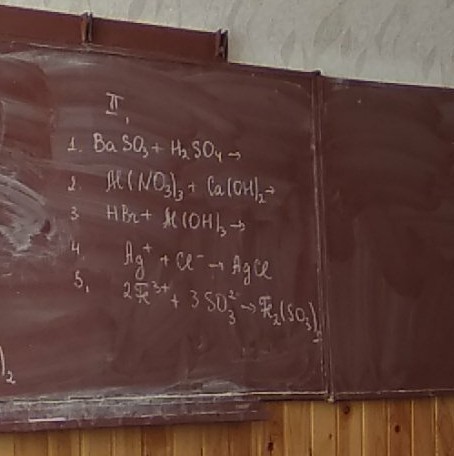 II,
1. BaSO₃ + H₂SO₄ →
2. Al(NO₃)₃ + Ca(OH)₂ →
3 HBr + Al(OH)₃ →
4. Ag⁺ + Cl⁻ → AgCl
5, 2Fe³⁺ + 3SO₃²⁻ → Fe₂(SO₃)
)₂